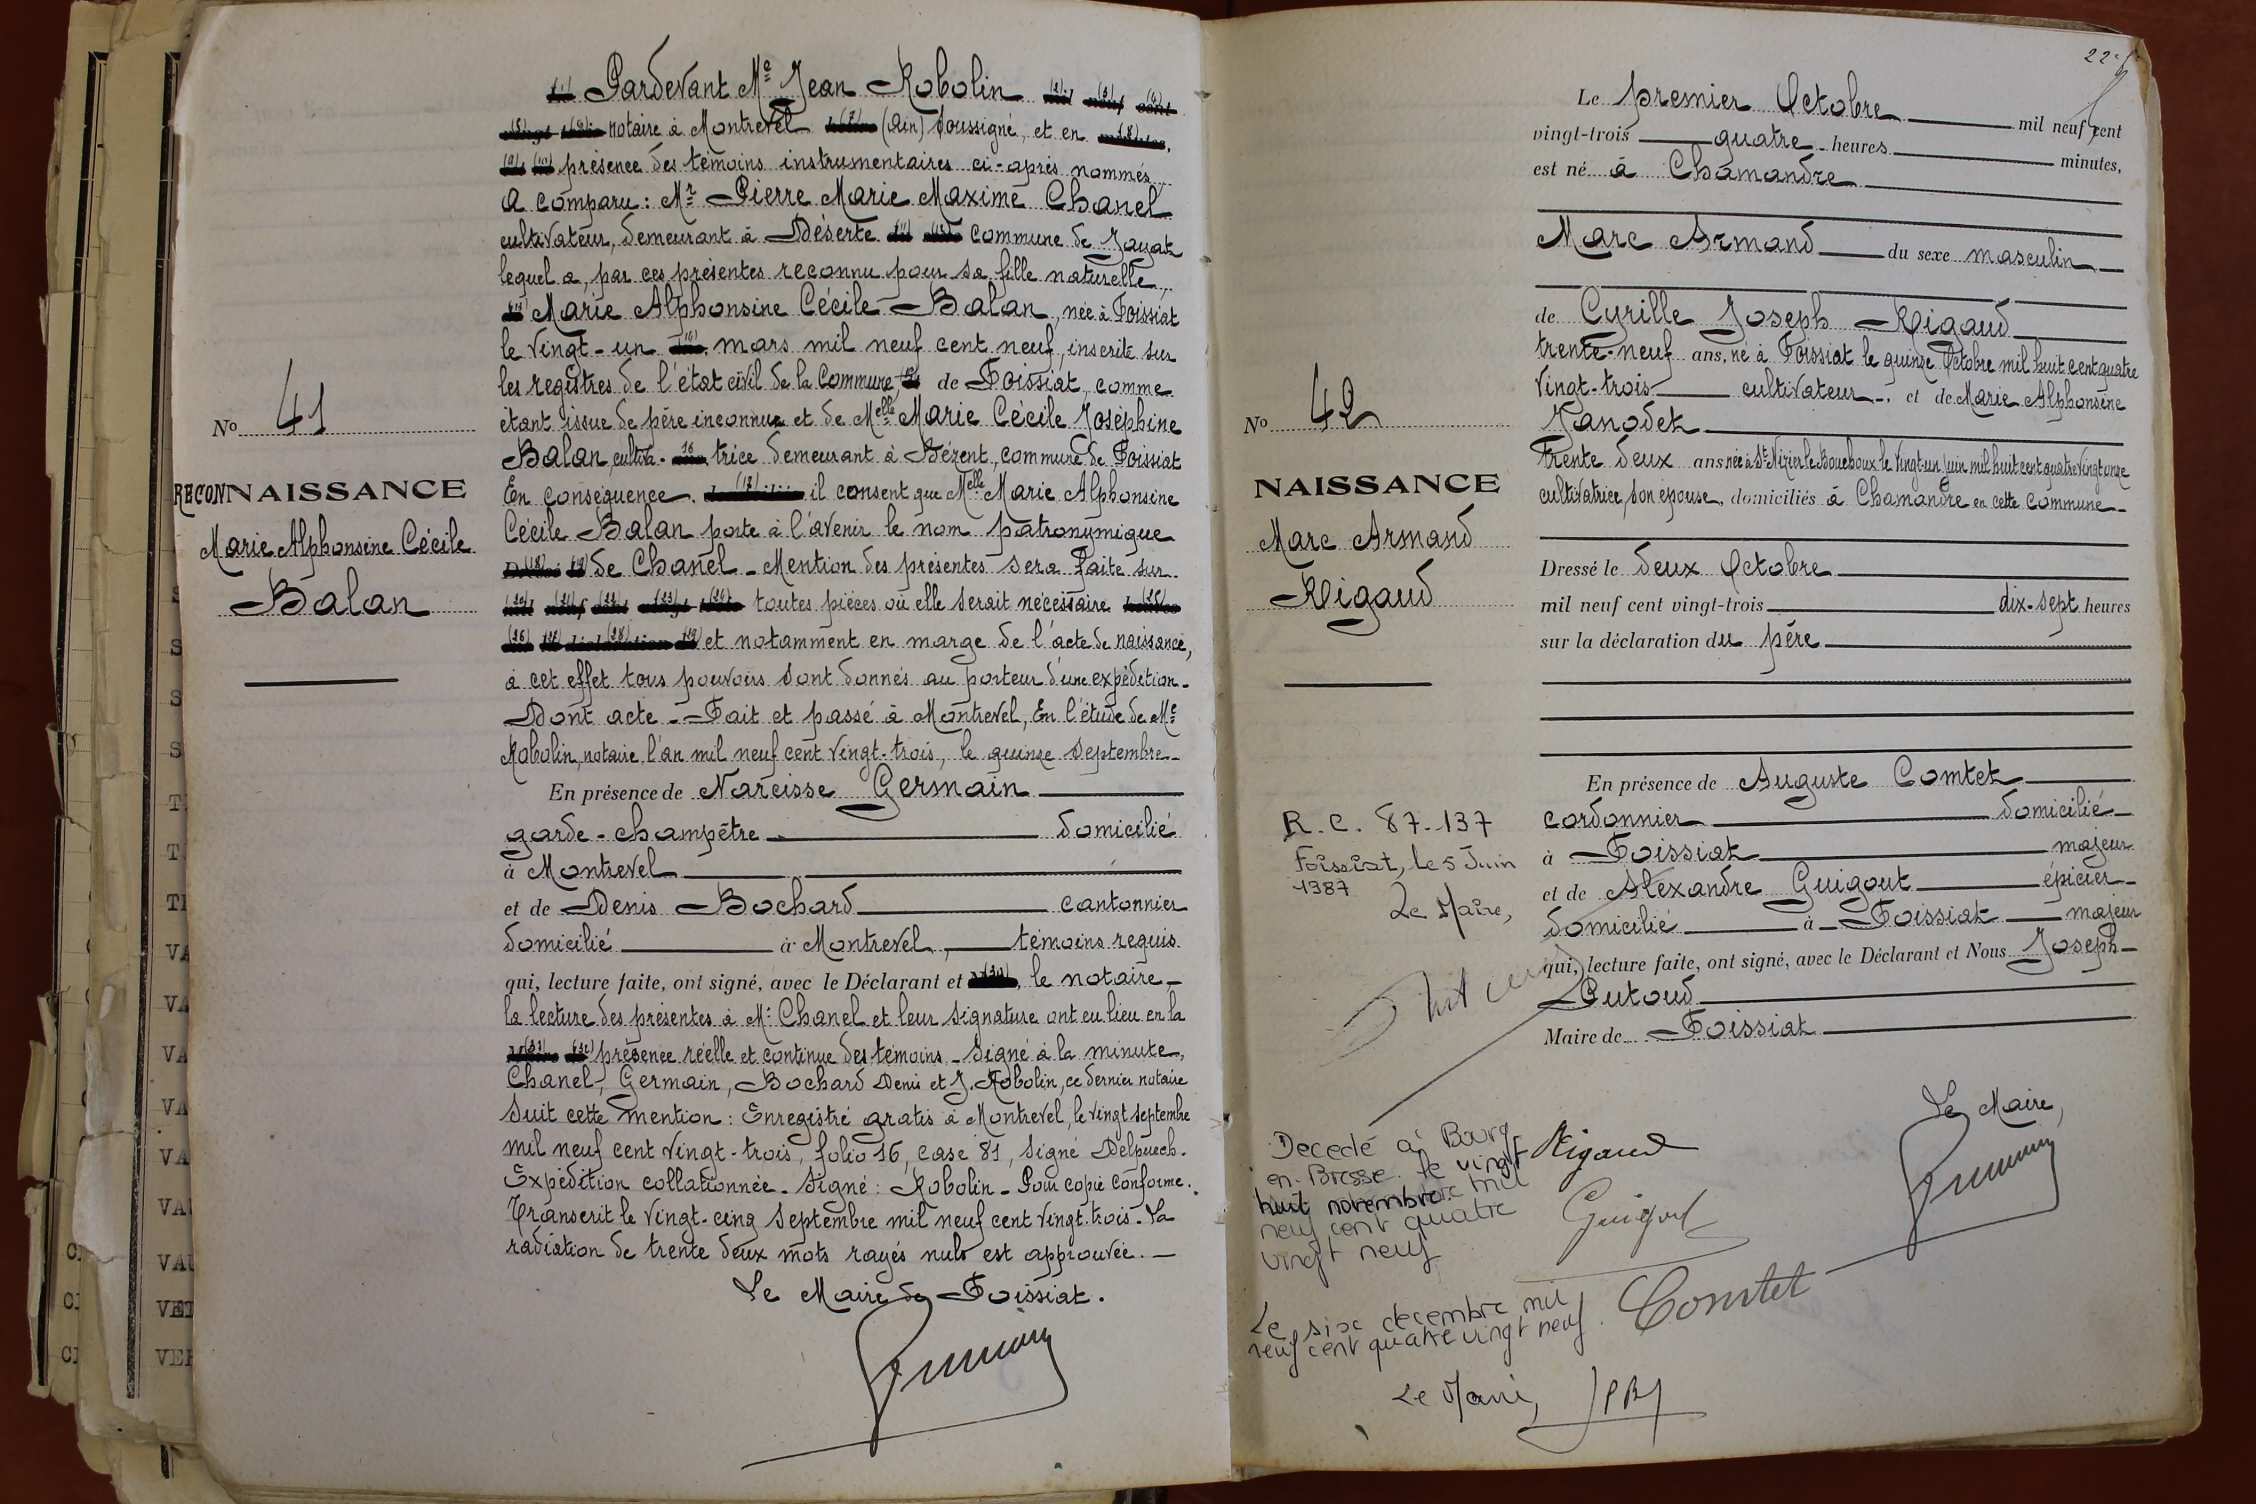 Pardevant Me Jean Robolin
notaire à Montrevel (Ain) soussigné, et en
présence des témoins instrumentaires ci-après nommés,
a comparu : Mr Pierre Marie Maxime Chanel
cultivateur, demeurant à Déserte commune de Jayat
lequel a, par ces présentes reconnu pour sa fille naturelle,
Marie Alphonsine Cécile Balan, née à Foissiat
le vingt-un mars mil neuf cent neuf, inscrite sur
les registres de l'état civil de la Commune de Foissiat, comme
étant issue de père inconnu et de Melle Marie Cécile Joséphine
Balan, cultiva-trice demeurant à Bézent, commune de Foissiat
En conséquence. il consent que Melle Marie Alphonsine
Cécile Balan porte à l'avenir le nom patronymique
de Chanel - Mention des présentes sera faite sur
toutes pièces où elle serait nécessaire
et notamment en marge de l'acte de naissance,
à cet effet tous pouvoirs sont donnés au porteur d'une expédition.
Dont acte - Fait et passé à Montrevel, En l'étude de Me
Robolin, notaire l'an mil neuf cent vingt-trois, le quinze Septembre
En présence de Narcisse Germain
garde-champêtre domicilié
à Montrevel
et de Denis Bochard cantonnier
domicilié à Montrevel, témoins requis
qui, lecture faite, ont signé, avec le Déclarant et le notaire
la lecture des présentes à Mr Chanel et leur signature ont eu lieu en la
présence réelle et continue des témoins - Signé à la minute,
Chanel, Germain, Bochard Denis et J. Robolin, ce dernier notaire
Suit cette mention : Enregistré gratis à Montrevel, le vingt septembre
mil neuf cent vingt-trois, folio 16, case 81, signé Delpuech.
Expédition collationnée - Signé : Robolin - Pour copie conforme.
Transcrit le vingt-cinq Septembre mil neuf cent vingt-trois - La
radiation de trente deux mots rayés nuls est approuvée. -
Le Maire de Foissiat.
No 41
RECONNAISSANCE
Marie Alphonsine Cécile
Balan
Le premier Octobre mil neuf cent
vingt-trois quatre heures minutes,
est né à Chamandre
Marc Armand du sexe masculin
de Cyrille Joseph Rigaud
trente-neuf ans, né à Foissiat le quinze Octobre mil huit cent quatre
vingt-trois cultivateur, et de Marie Alphonsine
Janodet
Trente deux ans née à St Nizier le Bouchoux le vingt-un Juin mil huit cent quatre vingt onze
cultivatrice, son épouse, domiciliés à Chamandre en cette commune
Dressé le deux Octobre
mil neuf cent vingt-trois dix-sept heures
sur la déclaration du père
En présence de Auguste Comtet
cordonnier domicilié
à Foissiat majeur
et de Alexandre Guigout épicier
domicilié à Foissiat majeur
qui, lecture faite, ont signé, avec le Déclarant et Nous Joseph
Putoud
Maire de Foissiat
Le Maire,
Rigaud
Guigout
Comtet
No 42
NAISSANCE
Marc Armand
Rigaud
R.C. 87-137
Foissiat, le 5 Juin
1987
Le Maire,
Decedé à Bourg
en-Bresse le vingt
huit novembre mil
neuf cent quatre
vingt neuf
Le six decembre mil
neuf cent quatre vingt neuf.
Le Maire,